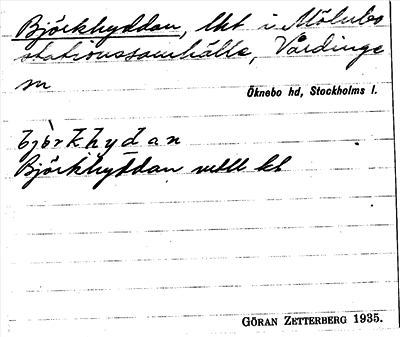 Björkhyddan, lht i Mölnbo
stationssamhälle, Vårdinge
sn
Öknebo hd, Stockholms l.
bjö̀rkhydan
Björkhyddan
GÖRAN ZETTERBERG 1935.